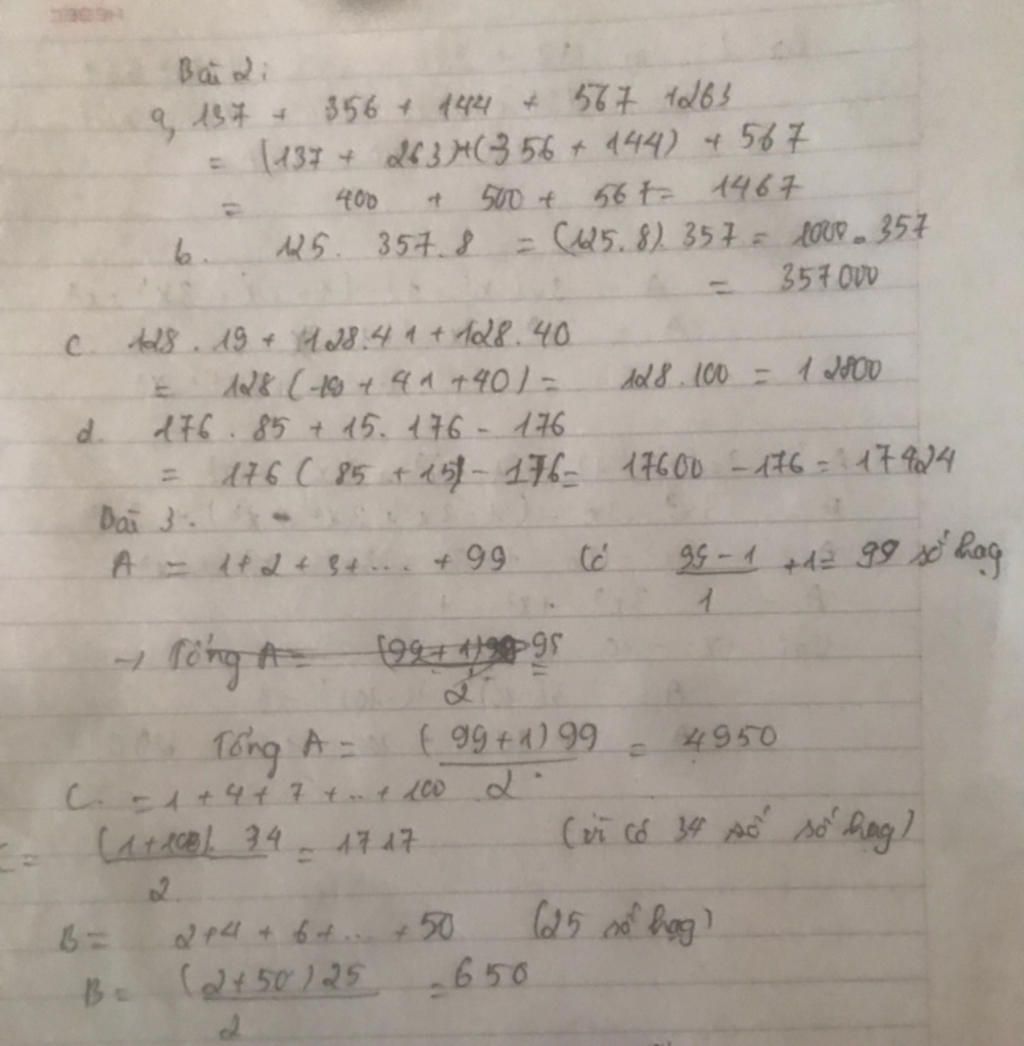 Bài 2:
a, 137 + 356 + 144 + 567 + 263
= (137 + 263)+(356 + 144) + 567
= 400 + 500 + 567 = 1467
b. 125. 357.8 = (125.8). 357 = 1000.357
= 357000
c. 128.19 + 128.41 + 128.40
= 128 (19 + 41 + 40) = 128.100 = 12800
d. 176.85 + 15.176 - 176
= 176 (85 + 15) - 176 = 17600 - 176 = 17424
Bài 3.
A = 1+2+3+... +99 Có (99-1)/1 +1= 99 số hạg
→ Tổng A = (99+1) 99/2 =
Tổng A = (99+1)99/2 = 4950
C. = 1+4+7+..+100
C = (1+100). 34/2 = 1717 (vì có 34 số số hạg)
B = 2+4+6+... +50 (25 số hạg)
B = (2+50)25/2 = 650